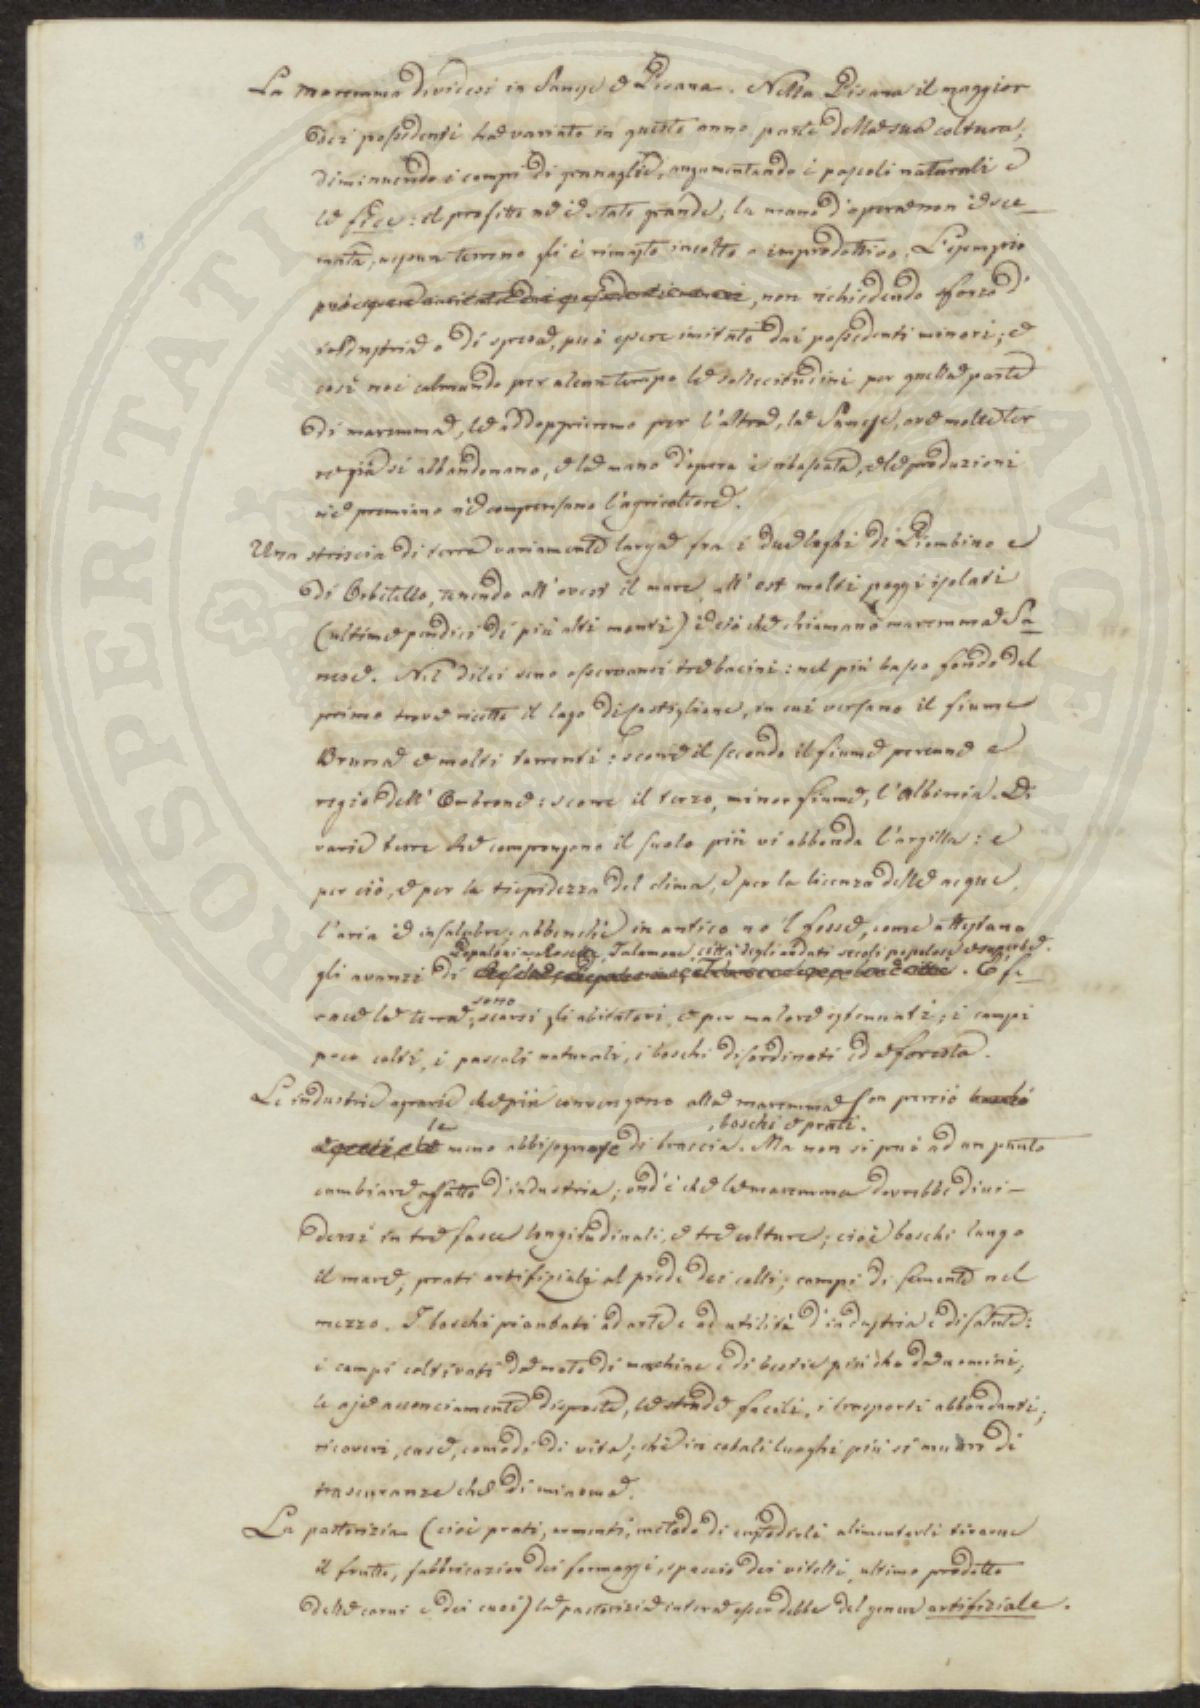 La maremma dividesi in Sanese e Pisana. Nella Pisana il maggior
dei possidenti ha variato in questo anno parte della sua coltura;
diminuendo i campi di granaglie, augumentando i pascoli naturali e
le : il profitto ne è stato grande; la mano d'opera non è sce-
mata, nessun terreno si è rimasto incolto o improduttivo. L'esempio
può, non richiedendo sforzo d'
industria o di spesa, può essere imitato dai possidenti minori; e
così noi calmando per alcun tempo le sollecitudini per quella parte
di maremma, le addoppieremo per l'altra, la Sanese, ove molte ter
re già si abbandonano, e la mano d'opera è ribassata, e le produzioni
nè premiano nè compensano l'agricoltore.
Una striscia di terra variamente larga fra i due laghi di Piombino e
di Orbetello, tenendo all'ovest il mare, all'est molti poggi isolati
(ultime pendici de' più alti monti) è ciò che chiamano maremma Sa-
nese. Nel di lei seno osservansi tre bacini: nel più basso fondo del
primo trova ricetto il lago di Castiglione, in cui versano il fiume
Bruna e molti torrenti: scorre il secondo il fiume perenne e
regio dell'Ombrone: scorre il terzo, minor fiume, l'Albinia. Di
varie terre che compongono il suolo più vi abbonda l'argilla: e
per ciò, e per la tiepidezza del clima, e per la licenza delle acque,
l'aria è insalubre; abbenchè in antico no 'l fosse, come attestano
Populonia, Roselle, Talamone, città degli andati secoli popolose e superbe.
gli avanzi di . E fe-
race la terra, sono scarsi gli abitatori, e per malore estenuati; i campi
poco colti, i pascoli naturali, i boschi disordinati ed a foresta.
Le industrie agrarie che più convengono alla maremma son perciò boschi
, boschi e prati.
le meno abbisognose di braccia. Ma non si può ad un punto
cambiare affatto d'industria; ond'è che la maremma dovrebbe divi-
dersi in tre fasce longitudinali, e tre colture; cioè boschi lungo
il mare, prati artifiziali al piede dei colli, campi di semente nel
mezzo. I boschi piantati ad arte e ad utilità d'industria e di salute:
i campi coltivati da moto di machine e di bestie più che da uomini;
le aje acconciamente disposte, le strade facili, i trasporti abbondanti;
ricoveri, case, comodi di vita; chè in cotali luoghi più si muore di
trascuranze che di miasma.
La pastorizia (cioè prati, armenti, metodo di custodirli alimentarli tirarne
il frutto, fabbricazion dei formaggi, spaccio dei vitelli, ultimo prodotto
delle carni e dei cuoi) la pastorizia intera esser debbe del genere artifiziale.